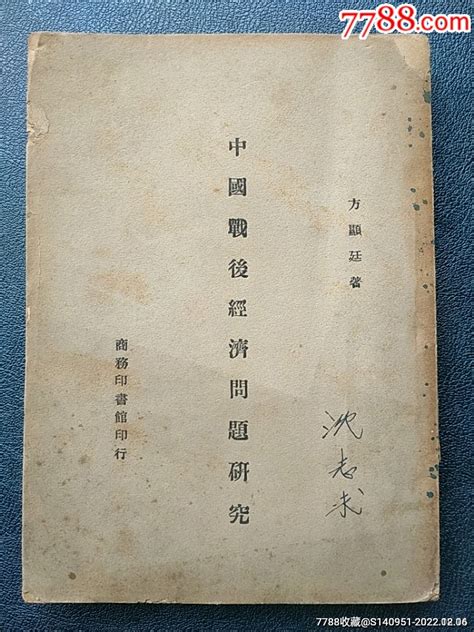 7788.com
中國戰後經濟問題研究
方顯廷著
商務印書館印行
沈志求
7788收藏@S140951-2022.12.06